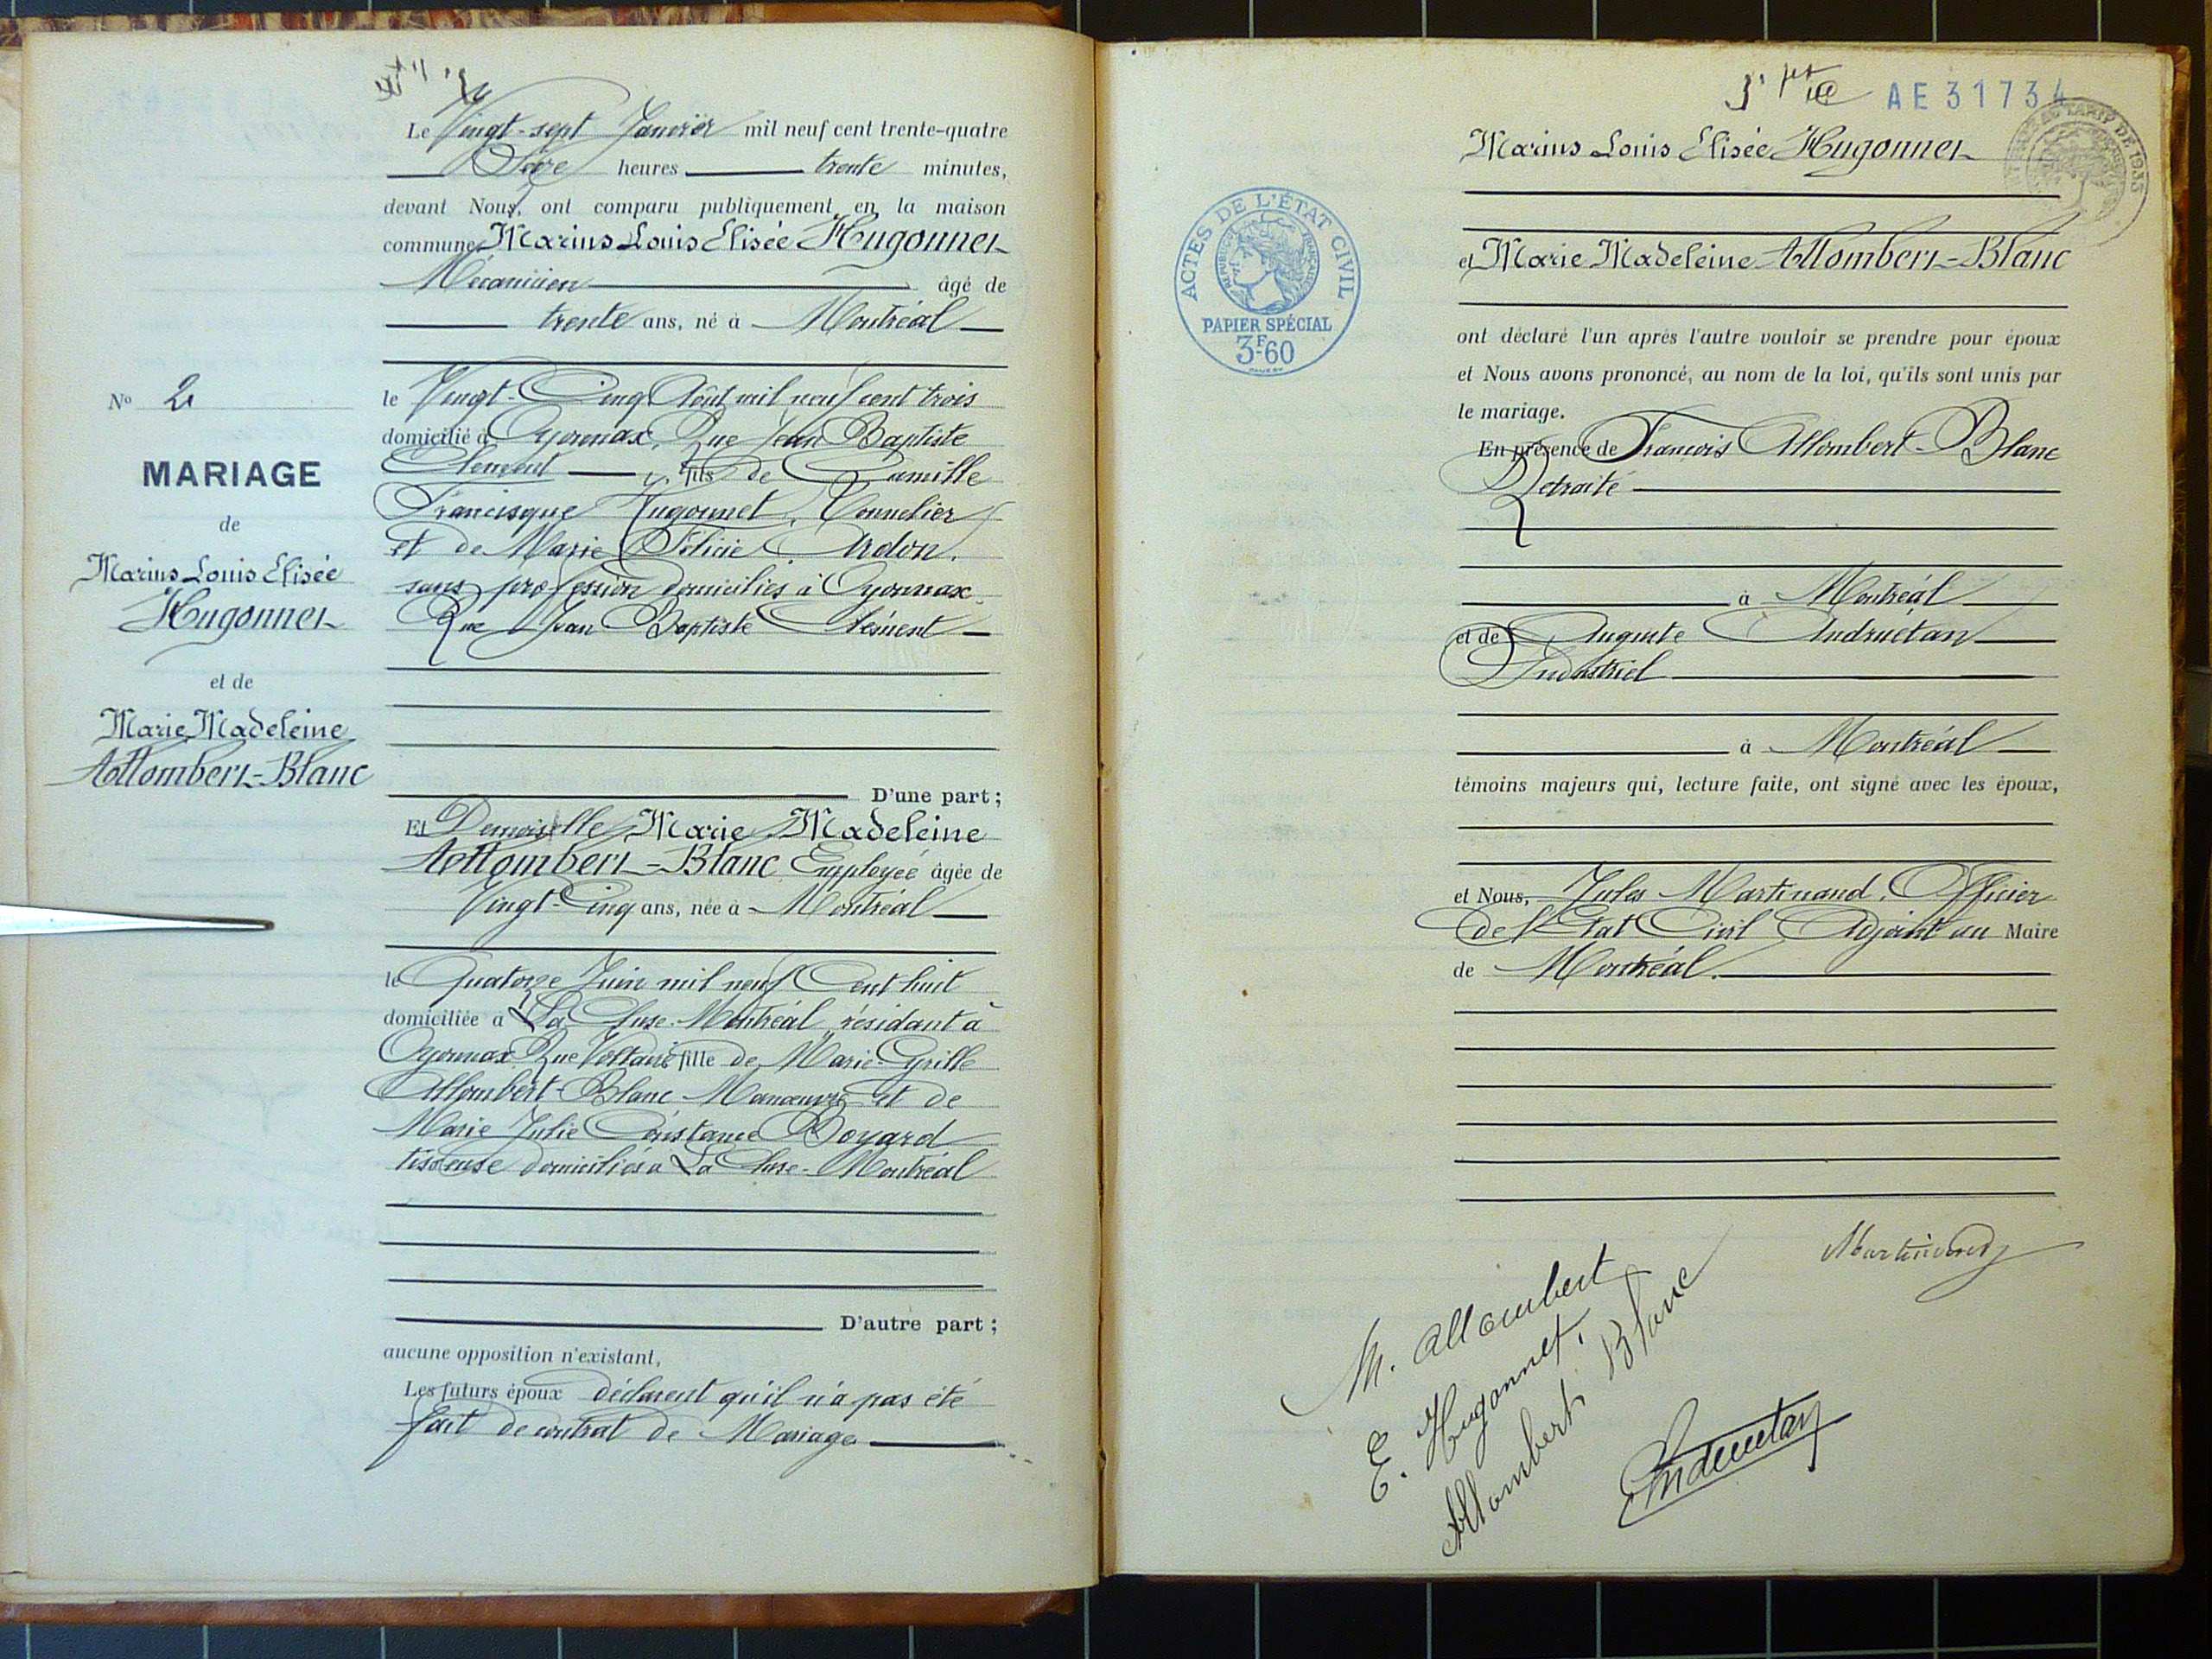 Le Vingt-sept Janvier mil neuf cent trente-quatre
heures trente minutes,
devant Nous, ont comparu publiquement en la maison
commune, Marius Louis Elisée Hugonnet
Mécanicien âgé de
trente ans, né à Montréal
le Vingt-Cinq Août mil neuf cent trois
domicilié à Oyonnax, Rue Jean Baptiste
Clément fils de Camille
Francisque Hugonnet, Cannelier
et de Marie Félicie Ardon,
sans profession domiciliés à Oyonnax
Rue Jean Baptiste Clément
D'une part ;
Nº 2
MARIAGE
de
Marius Louis Elisée
Hugonnet
et de
Marie Madeleine
Allombert-Blanc
Et Demoiselle Marie Madeleine
Allombert-Blanc Employée âgée de
Vingt-Cinq ans, née à Montréal
le Quatorze Juin mil neuf Cent huit
domiciliée à La Cluse-Montréal résidant à
Oyonnax Rue Voltaire fille de Marie
Allombert-Blanc Manœuvre et de
Marie Julie Constance Boyard
tisseuse domiciliés à La Cluse-Montréal
D'autre part ;
aucune opposition n'existant,
Les futurs époux déclarent qu'il n'a pas été
fait de contrat de Mariage
AE 31734
TARIF DE 1933
ACTES DE L'ÉTAT CIVIL
RÉPUBLIQUE FRANÇAISE
PAPIER SPÉCIAL
3F60
Marius Louis Elisée Hugonnet
et Marie Madeleine Allombert-Blanc
ont déclaré l'un après l'autre vouloir se prendre pour époux
et Nous avons prononcé, au nom de la loi, qu'ils sont unis par
le mariage.
En présence de François Allombert-Blanc
Retraité
à Montréal
et de Auguste Andruétan
Industriel
à Montréal
témoins majeurs qui, lecture faite, ont signé avec les époux,
et Nous, Jules Martinand, Officier
de l'Etat Civil Adjoint au Maire
de Montréal.
Martinand
M. Allombert
E. Hugonnet.
Allombert Blanc
Andruetan